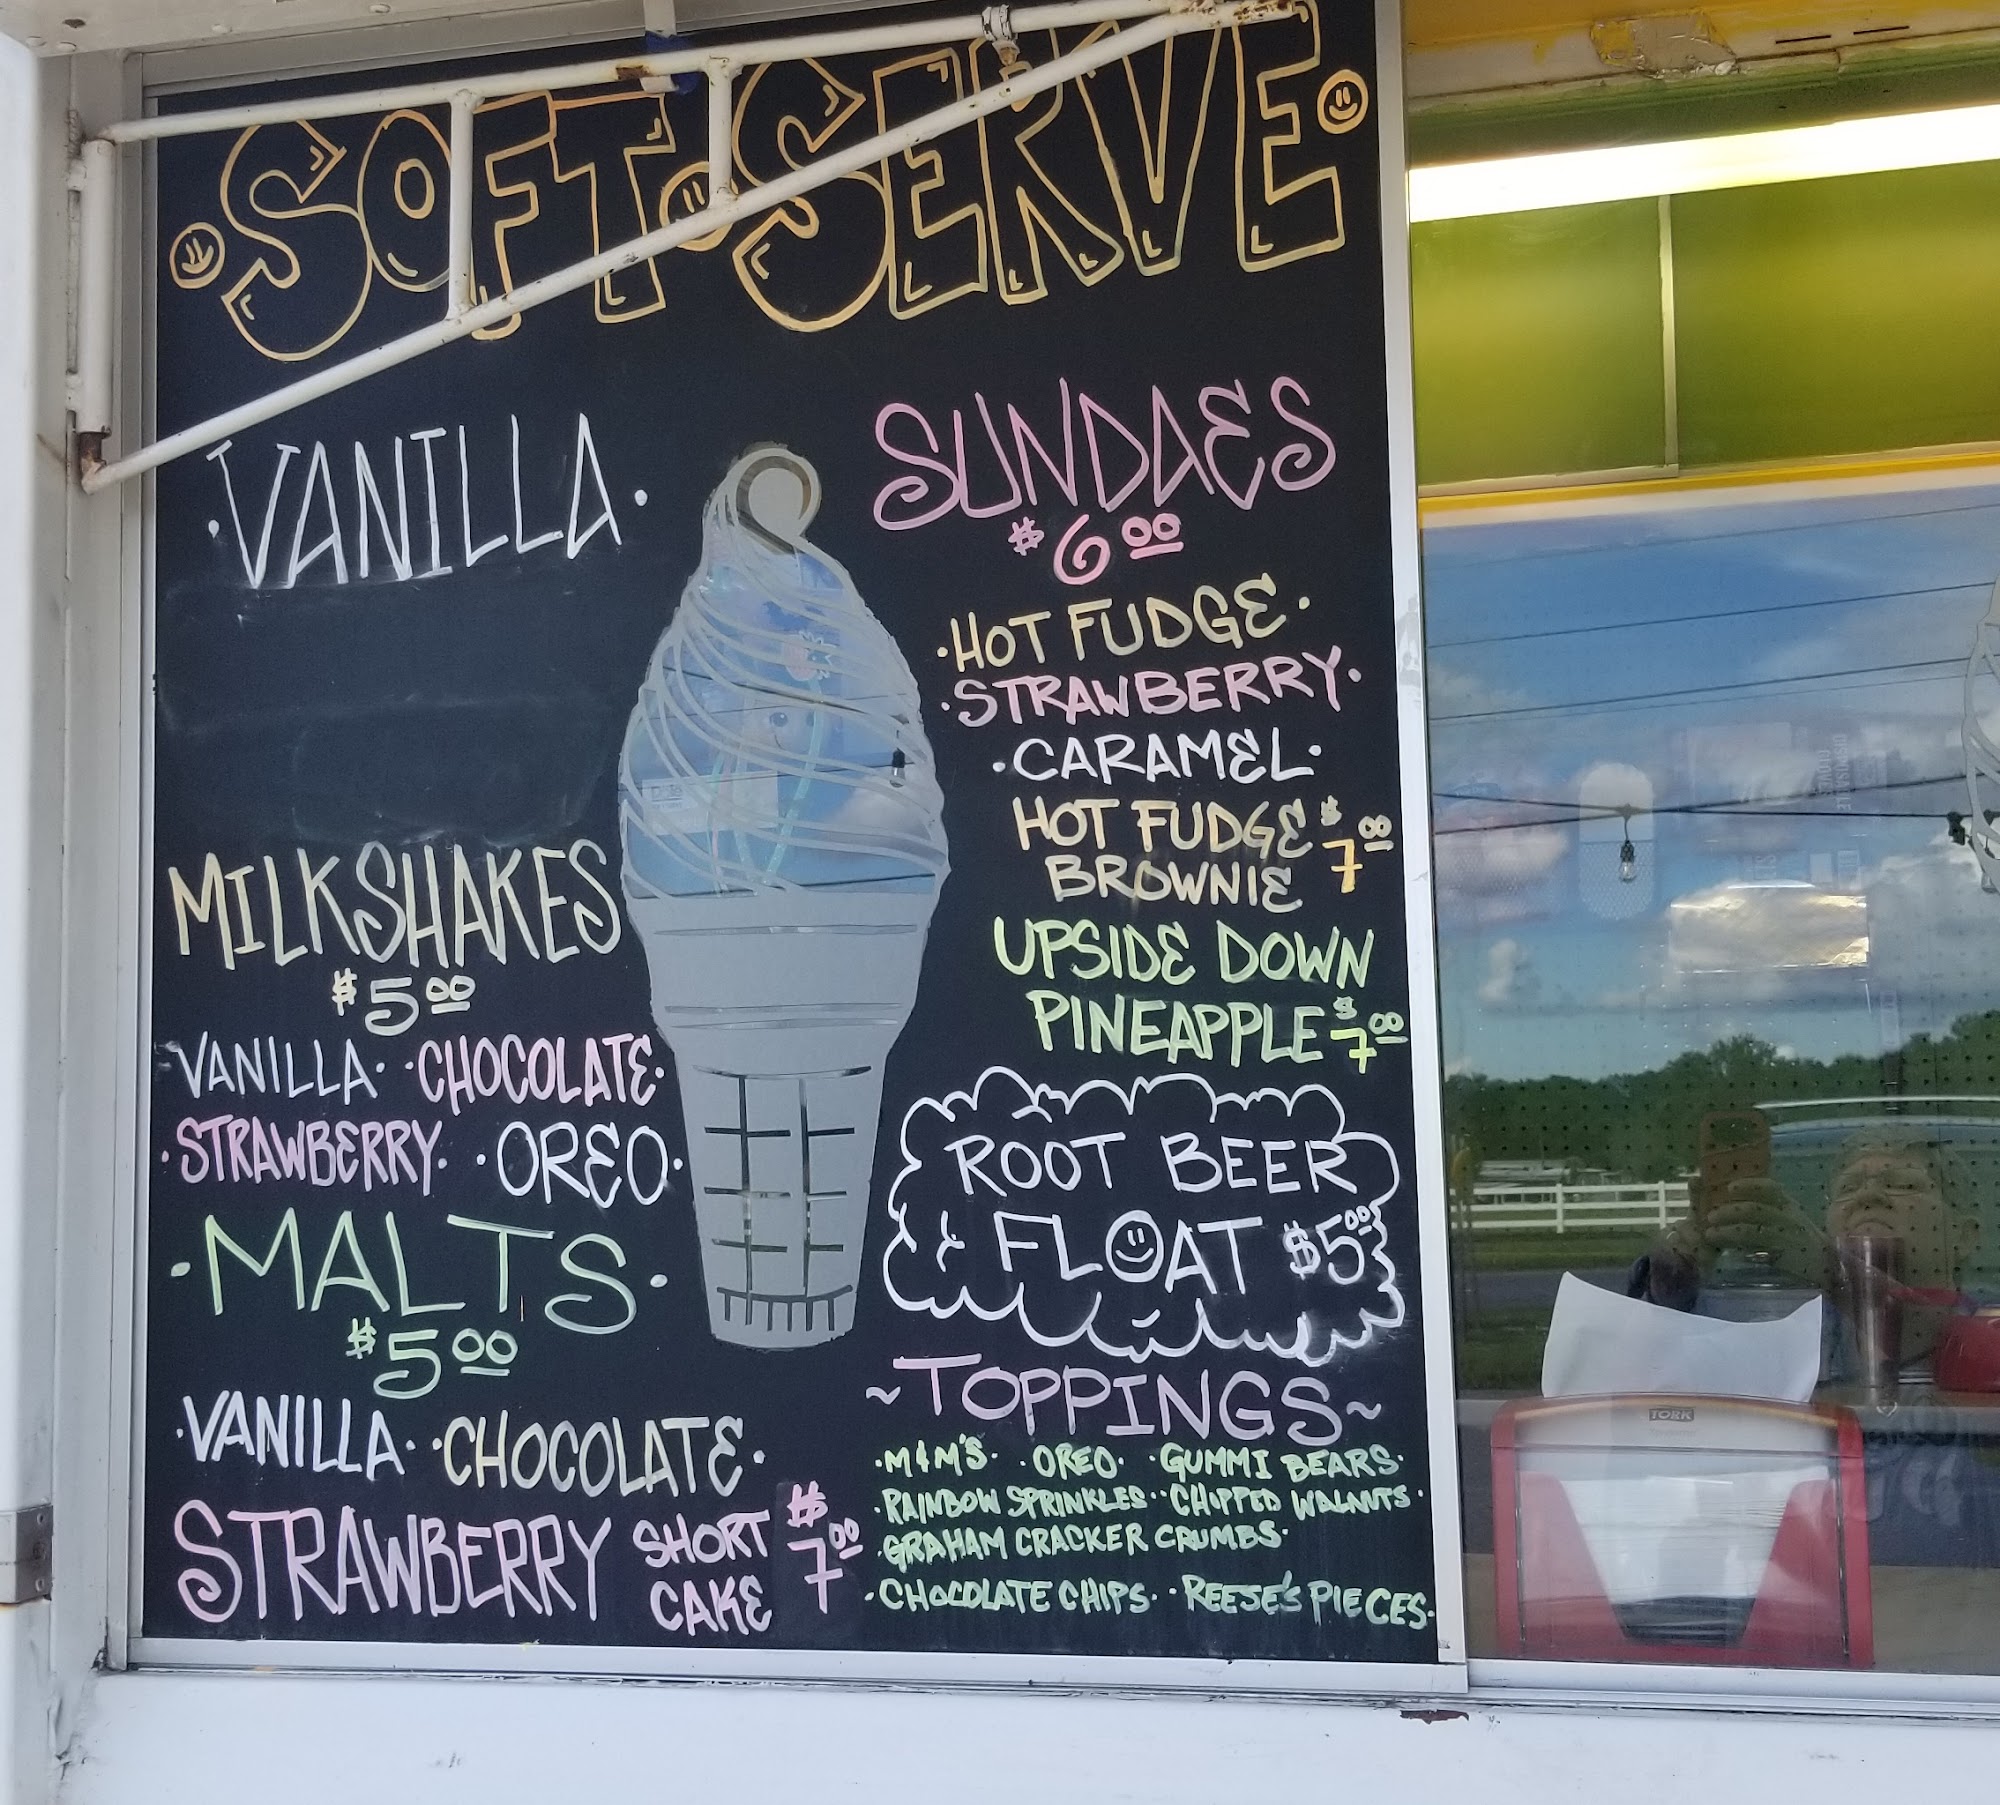 SOFT SERVE
VANILLA
MILKSHAKES
$5.00
VANILLA · CHOCOLATE
STRAWBERRY · OREO
MALTS
$5.00
VANILLA · CHOCOLATE
STRAWBERRY SHORT CAKE $7.00
SUNDAES
$6.00
HOT FUDGE
STRAWBERRY
CARAMEL
HOT FUDGE $7.00
BROWNIE
UPSIDE DOWN
PINEAPPLE $7.00
ROOT BEER
FLOAT $5.00
~TOPPINGS~
·M&M'S· ·OREO· ·GUMMI BEARS·
·RAINBOW SPRINKLES· ·CHIPPED WALNUTS·
·GRAHAM CRACKER CRUMBS·
·CHOCOLATE CHIPS· ·REESE'S PIECES·
TORK